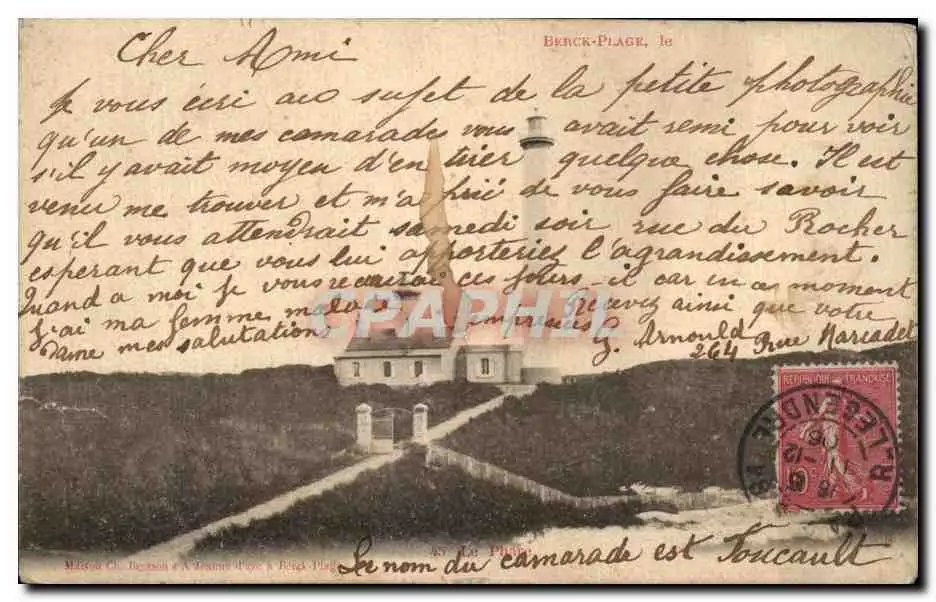 BERCK-PLAGE, le
Cher Ami
Je vous écri au sujet de la petite photographie
qu'un de mes camarades vous avait remi pour voir
s'il y avait moyen d'en tirer quelque chose. Il est
venu me trouver et m'a prié de vous faire savoir
qu'il vous attendrait samedi soir, rue du Rocher
esperant que vous lui apporteries l'agrandissement.
Quand a moi je vous ces jours-it car in a moment
J'ai ma femme malade Recevez ainsi que votre
Dame mes salutations empressées G. Arnould
264 Rue Marcadet
CPAPHIL
REPUBLIQUE FRANÇAISE
R-LEGENDRE
45 Le Phare
Le nom du camarade est Toucault